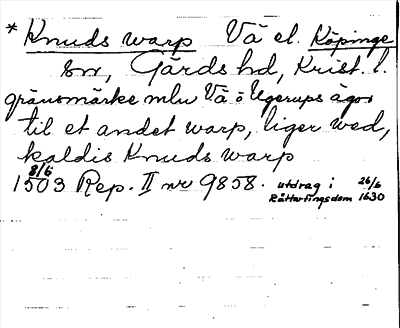 * Knuds warp Vä el. Köpinge
sn, Gärds hd, Krist. l.
gränsmärke mlw Vä o Ugerups ägor
til et andet warp, liger wed,
kaldis Knuds warp
8/6
1503 Rep. II nr 9858. utdrag i 26/6
Rättartingsdom 1630